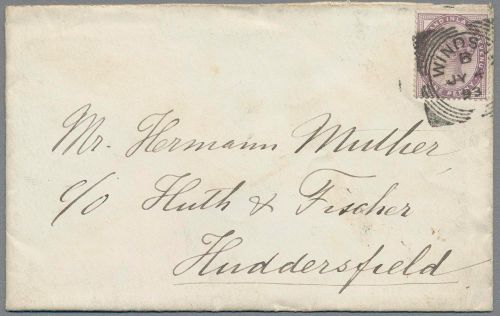 WINDS
6
JY
93
AND INLA
Mr. Hermann Muther
c/o Huth & Fischer
Huddersfield